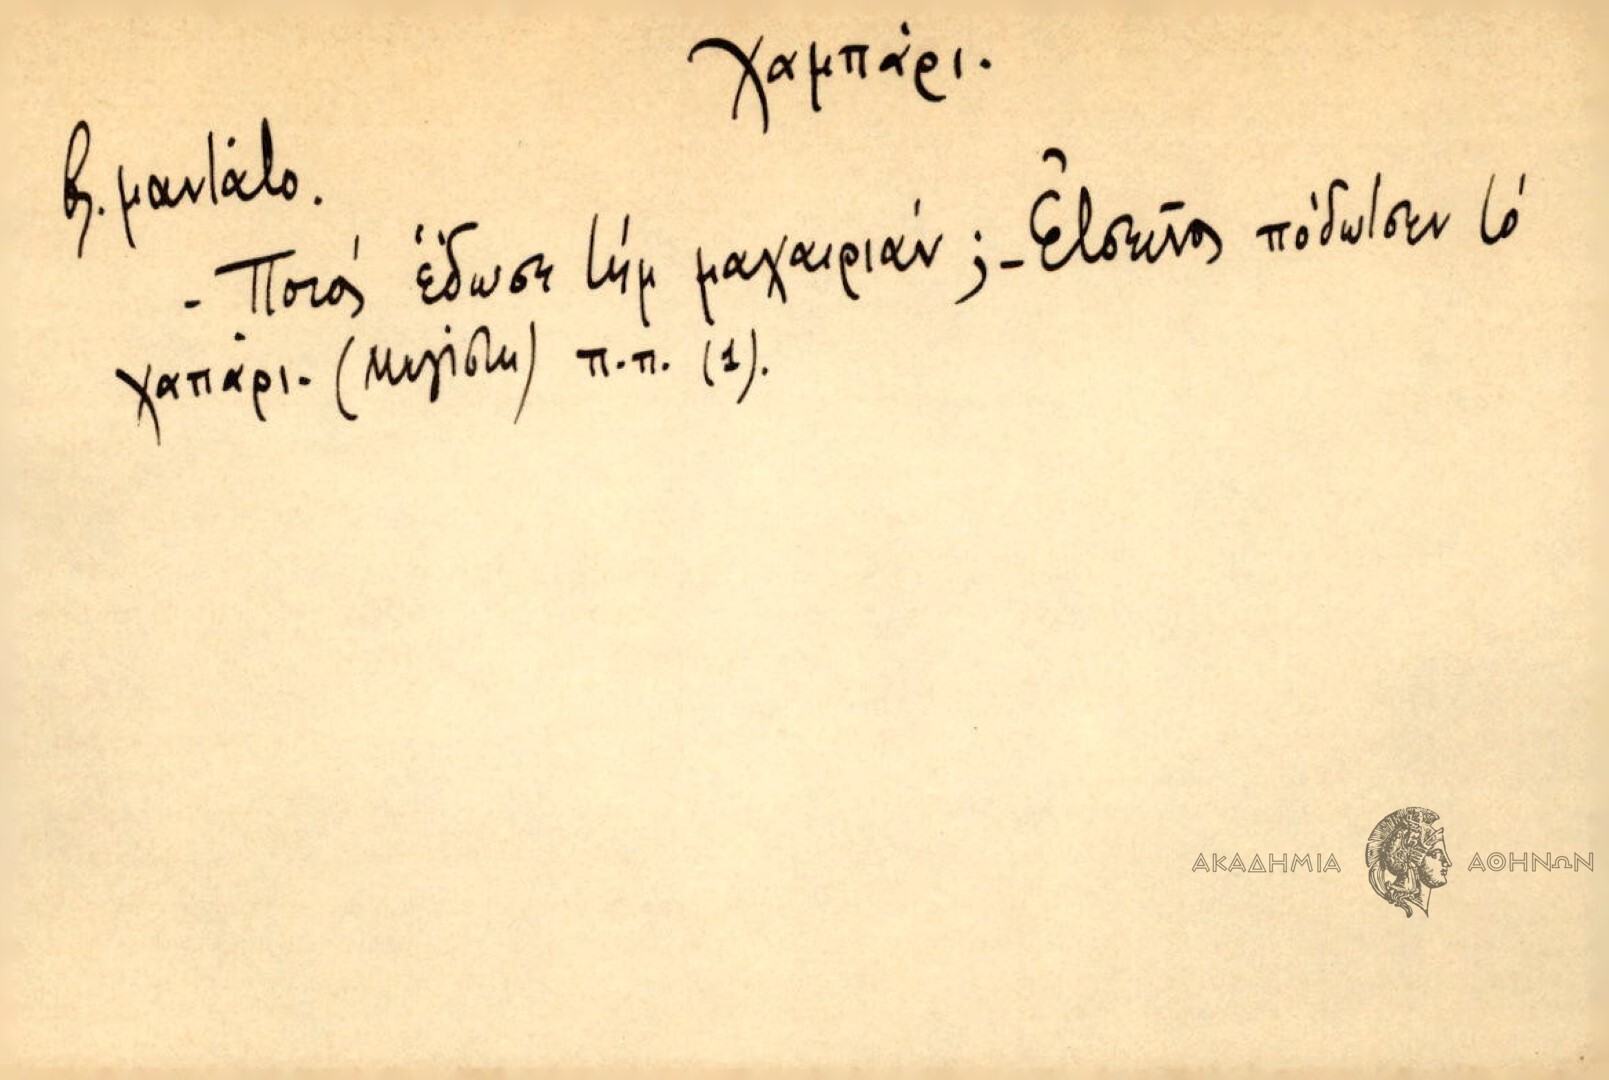 χαμπάρι.
βλ. μαντάτο.
- Ποιός ἔδωσε τήμ μαχαιριάν ; - Ἐτσεῖνος πόδωτσεν τό
χαπάρι. (Μεγίστη) π.π. (1).
ΑΚΑΔΗΜΙΑ ΑΘΗΝΩΝ